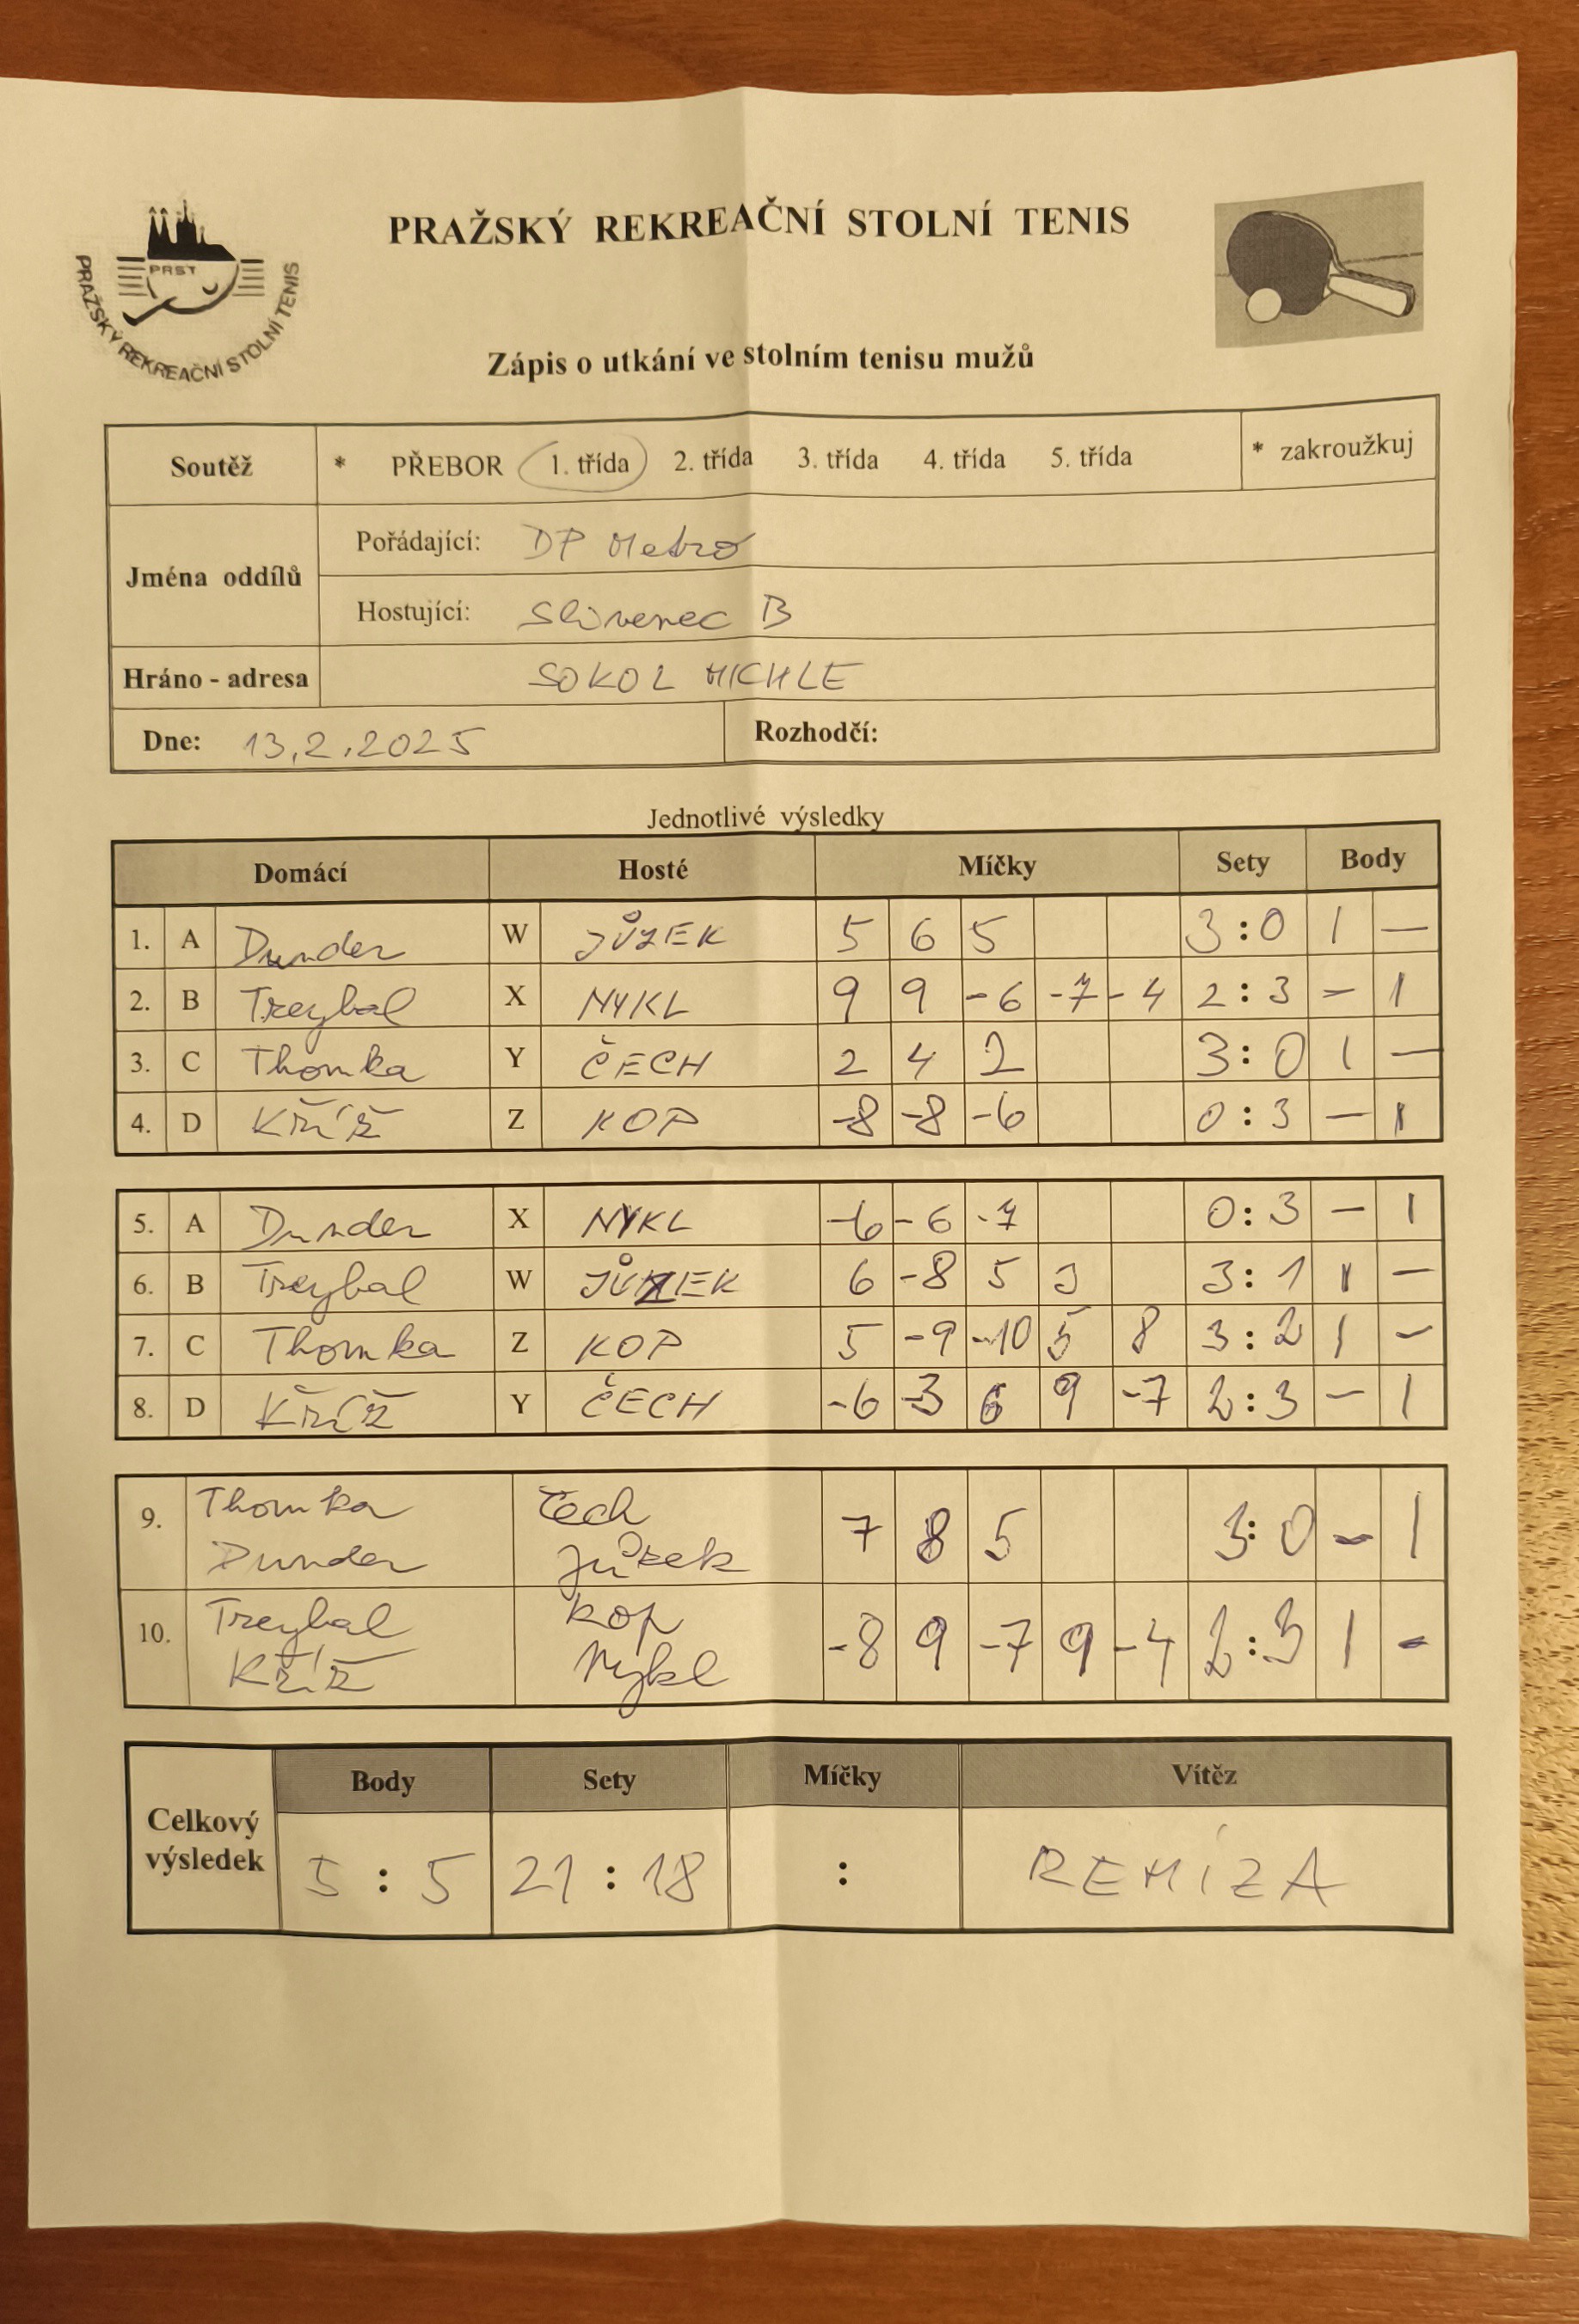 PRAŽSKÝ REKREAČNÍ STOLNÍ TENIS
PRST
PRAŽSKÝ REKREAČNÍ STOLNÍ TENIS
Zápis o utkání ve stolním tenisu mužů
Soutěž * PŘEBOR 1. třída 2. třída 3. třída 4. třída 5. třída * zakroužkuj
Jména oddílů
Pořádající: DP Metro
Hostující: Slivenec B
Hráno - adresa SOKOL MICHLE
Dne: 13.2.2025 Rozhodčí:
Jednotlivé výsledky
Domácí Hosté Míčky Sety Body
1. A Dunder W JŮZEK 5 6 5 3:0 1 —
2. B Treybal X NYKL 9 9 -6 -7 -4 2:3 - 1
3. C Thomka Y ČECH 2 4 2 3:0 1 —
4. D Kříž Z KOP -8 -8 -6 0:3 — 1
5. A Dunder X NYKL -6 -6 -7 0:3 - 1
6. B Treybal W JŮZEK 6 -8 5 3:1 1 -
7. C Thomka Z KOP 5 -9 -10 5 8 3:2 1 -
8. D Kříž Y ČECH -6 -3 6 9 -7 2:3 - 1
9. Thomka Čech 7 8 5 3:0 - 1
Dunder Jůzek
10. Treybal Kop -8 9 -7 9 -4 2:3 1 -
Kříž Nykl
Celkový výsledek
Body Sety Míčky Vítěz
5 : 5 21 : 18 : REMÍZA